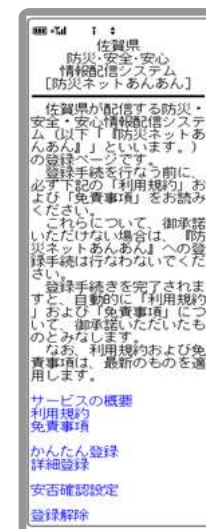 佐賀県
防災・安全・安心
情報配信システム
[防災ネットあんあん]
佐賀県が配信する防災・
安全・安心情報配信システ
ム（以下「『防災ネットあ
んあん』」といいます。）
の登録ページです。
登録手続を行なう前に、
必ず下記の「利用規約」お
よび「免責事項」をお読み
ください。
これらについて、御承諾
いただけない場合は、『防
災ネットあんあん』への登
録手続は行なわないでくだ
さい。
登録手続きを完了されま
すと、自動的に「利用規約
」および「免責事項」につ
いて、御承諾いただいたも
のとみなします。
なお、利用規約および免
責事項は、最新のものを適
用します。
サービスの概要
利用規約
免責事項
かんたん登録
詳細登録
安否確認設定
登録解除